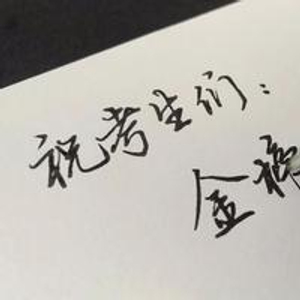 祝考生们：
金榜